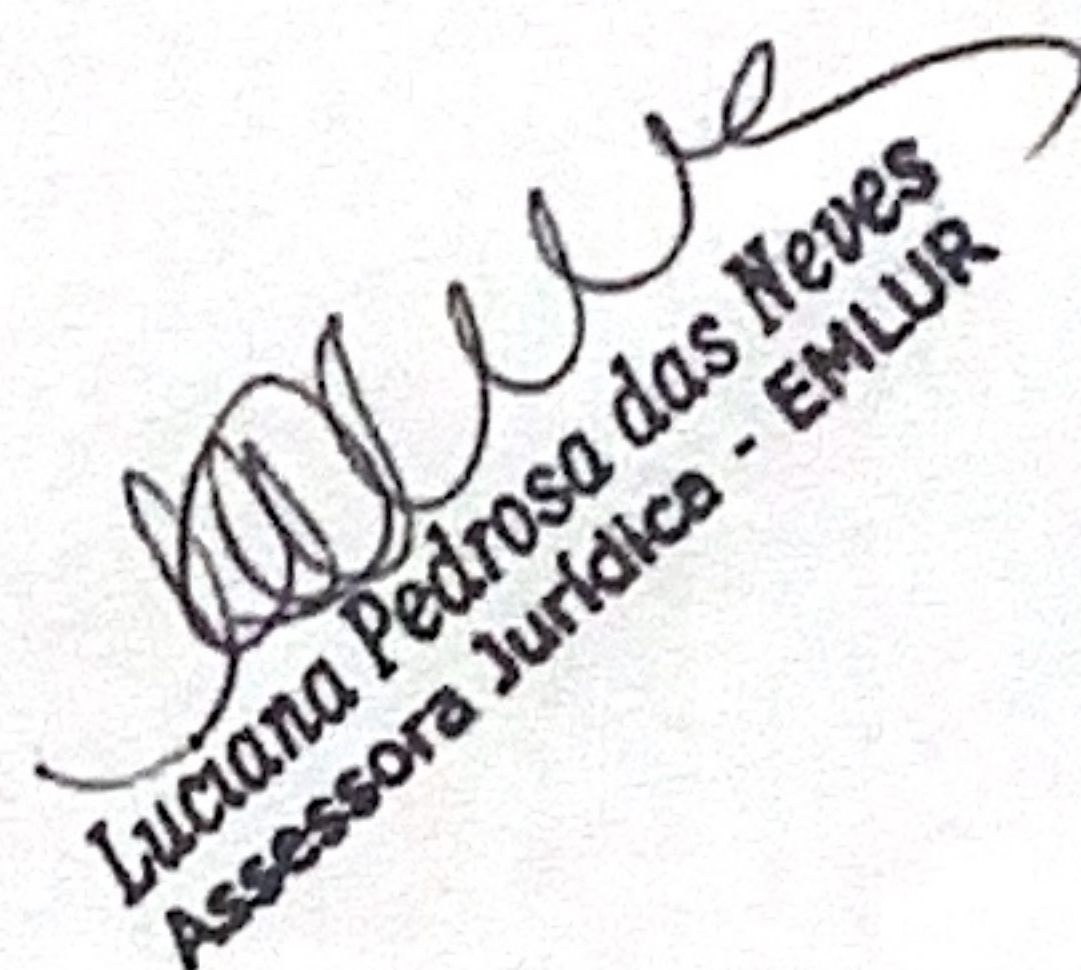 Luciana Pedrosa das Neves
Assessora Jurídica - EMLUR